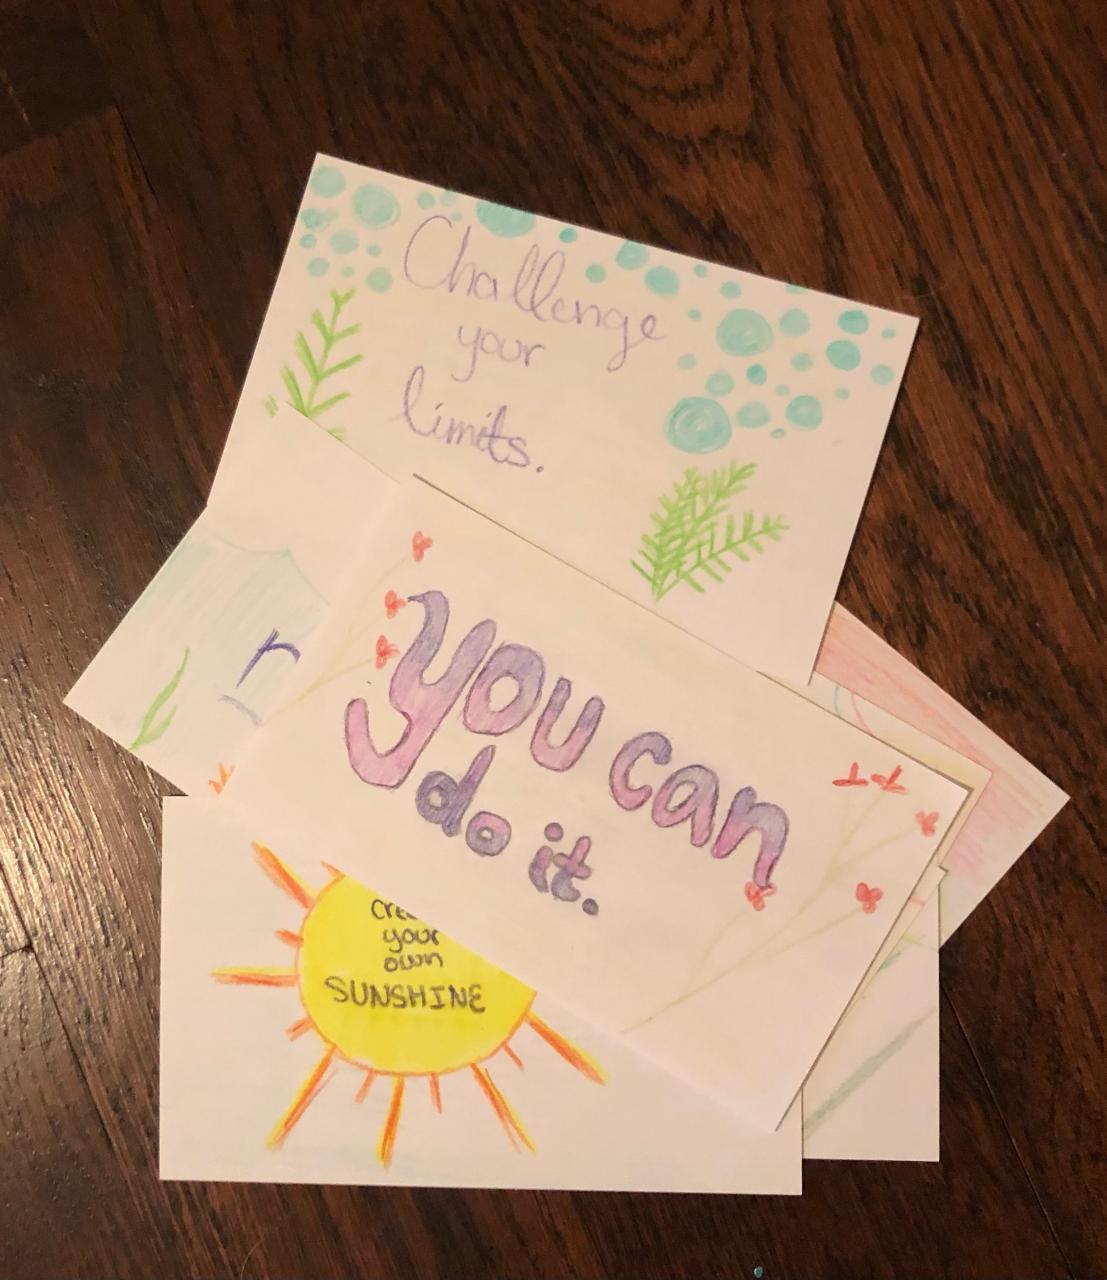 Challenge
your
limits.
r
you can
do it.
your
own
SUNSHINE